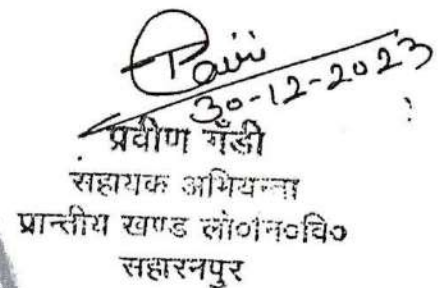 30-12-2023
प्रवीण गैंडी
सहायक अभियन्ता
प्रान्तीय खण्ड लो०नि०वि०
सहारनपुर